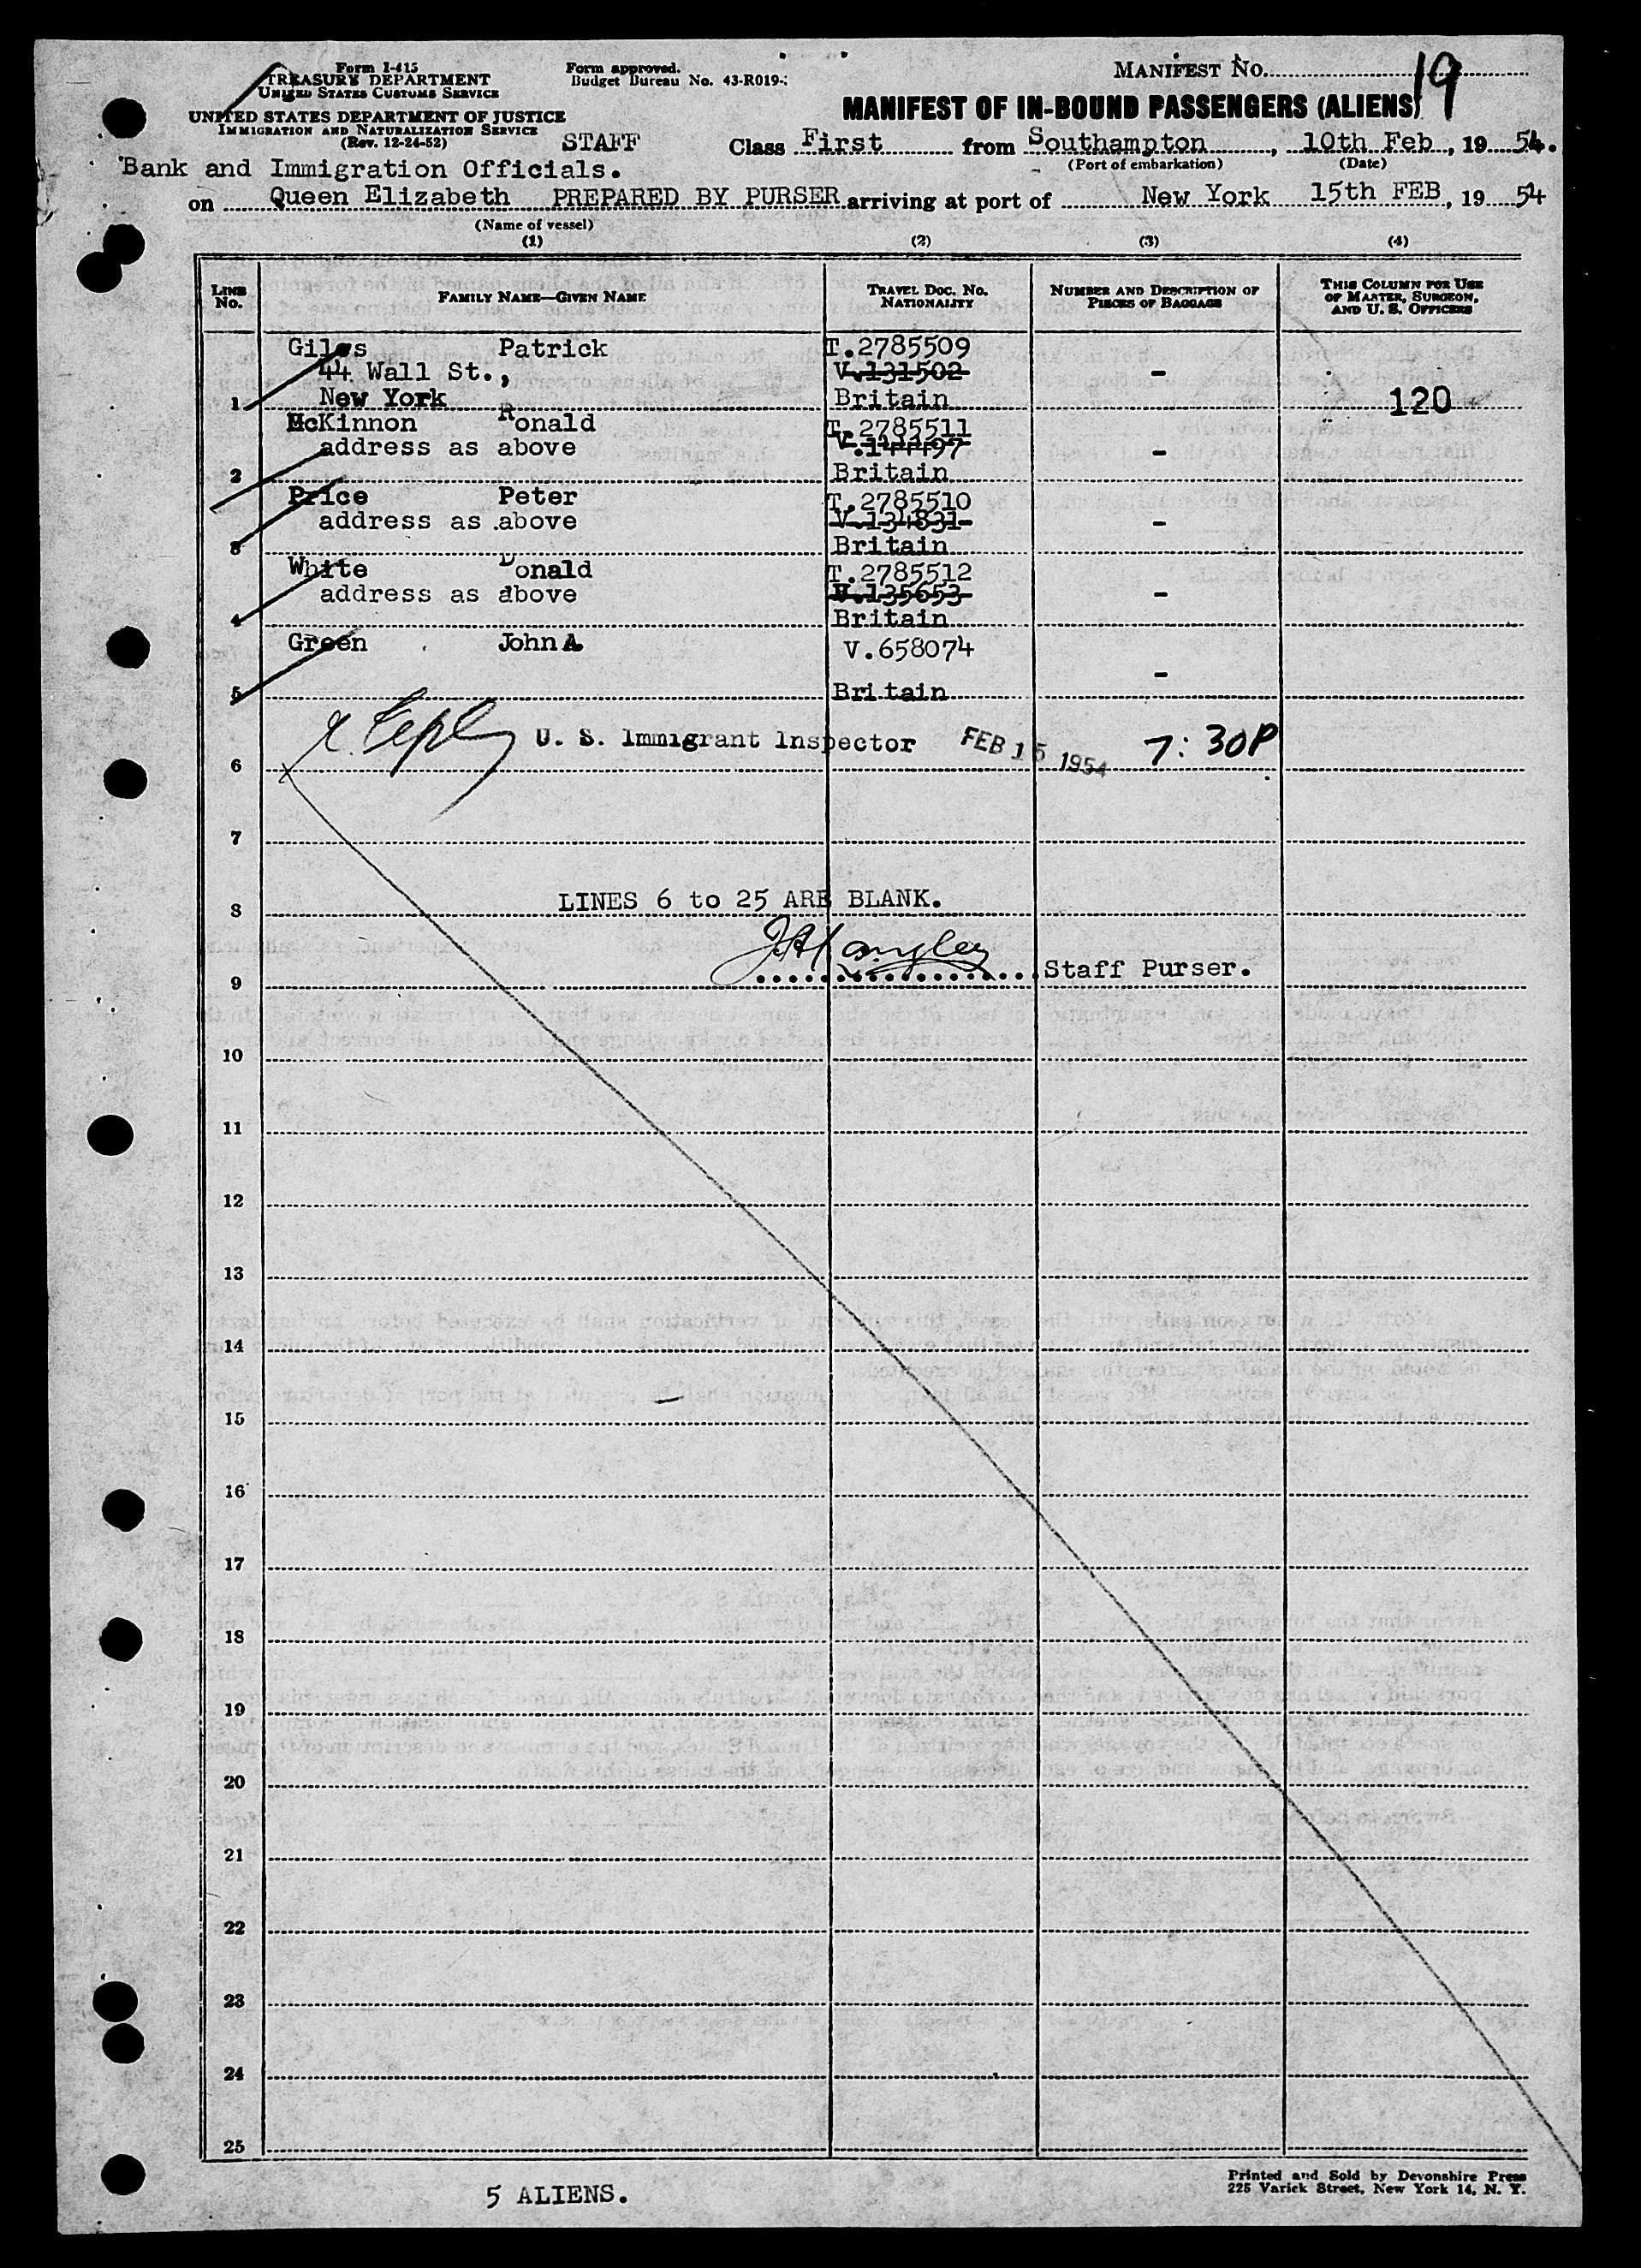 Form I-415
TREASURY DEPARTMENT
UNITED STATES CUSTOMS SERVICE
UNITED STATES DEPARTMENT OF JUSTICE
IMMIGRATION AND NATURALIZATION SERVICE
(Rev. 12-24-52)
Form approved.
Budget Bureau No. 43-R019-
MANIFEST NO. 19
MANIFEST OF IN-BOUND PASSENGERS (ALIENS)
STAFF Class First from Southampton, 10th Feb, 1954.
(Port of embarkation) (Date)
Bank and Immigration Officials.
on Queen Elizabeth PREPARED BY PURSER arriving at port of New York 15th FEB, 1954
(Name of vessel)
(1) (2) (3) (4)
LINE NO. FAMILY NAME—GIVEN NAME TRAVEL DOC. NO. NATIONALITY NUMBER AND DESCRIPTION OF PIECES OF BAGGAGE THIS COLUMN FOR USE OF MASTER, SURGEON, AND U. S. OFFICERS
Giles Patrick T.2785509
44 Wall St., V.131502 -
1 New York Britain 120
McKinnon Ronald T.2785511
address as above V.144497 -
2 Britain
Price Peter T.2785510
address as above V.134831 -
3 Britain
White Donald T.2785512
address as above V.135653 -
4 Britain
Green John A. V.658074
-
5 Britain
U. S. Immigrant Inspector FEB 15 1954 7:30P
6
7
8 LINES 6 to 25 ARE BLANK.
9 Staff Purser.
10
11
12
13
14
15
16
17
18
19
20
21
22
23
24
25
5 ALIENS.
Printed and Sold by Devonshire Press
225 Varick Street, New York 14, N. Y.